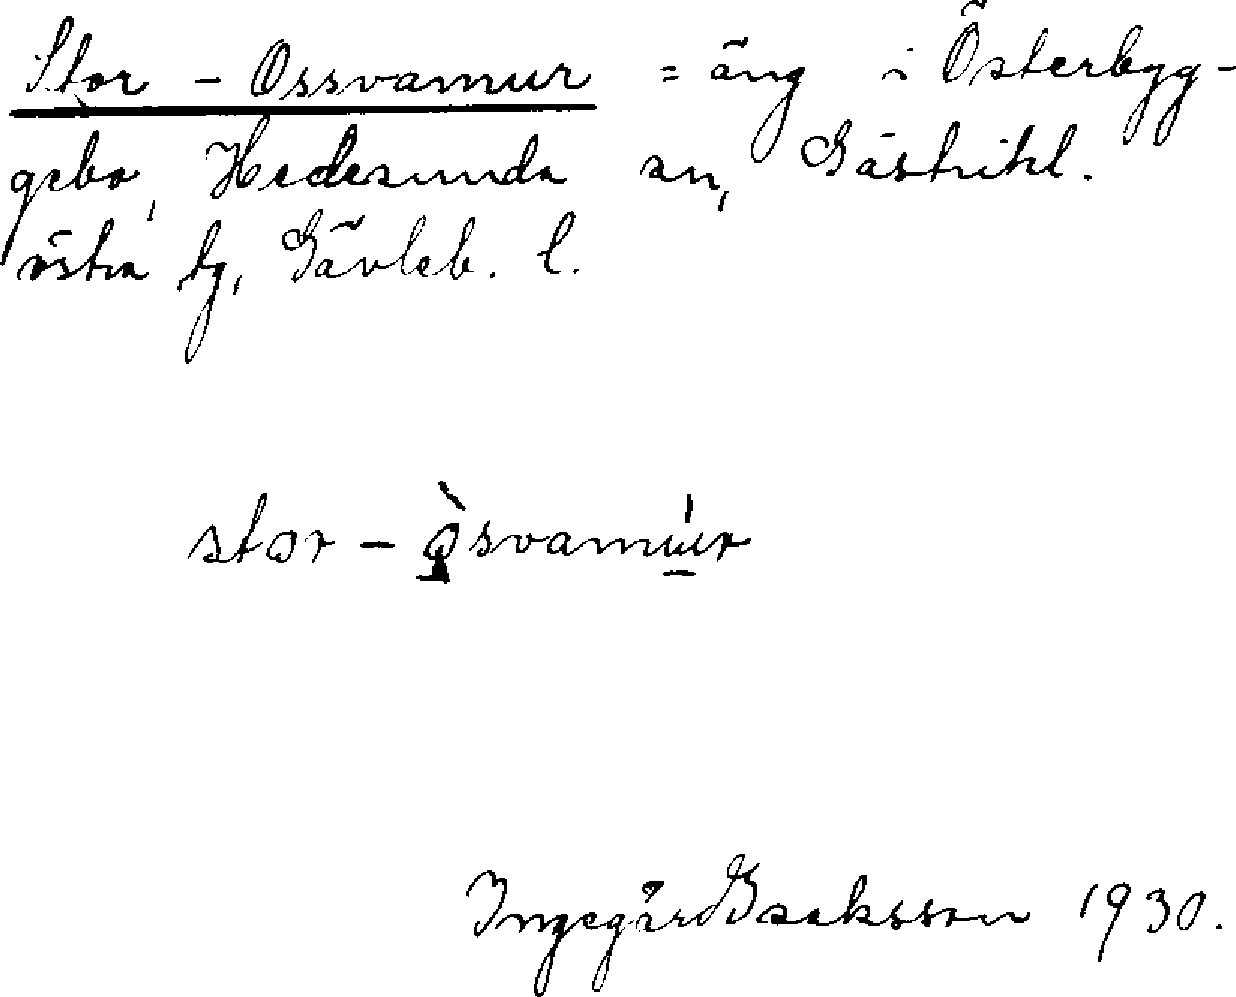 Stor - Ossvamur = äng i Österbyg-
gebo, Hedesunda sn, Gästrikl.
östra tg, Gävleb. l.
stor - òsvamúr
Ingegärd Isaksson 1930.